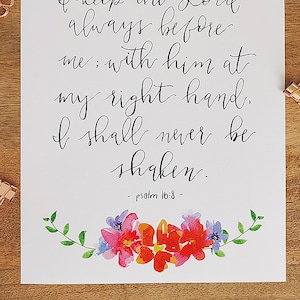 I keep the Lord
always before
me; with him at
my right hand,
I shall never be
shaken.
- psalm 16:8 -